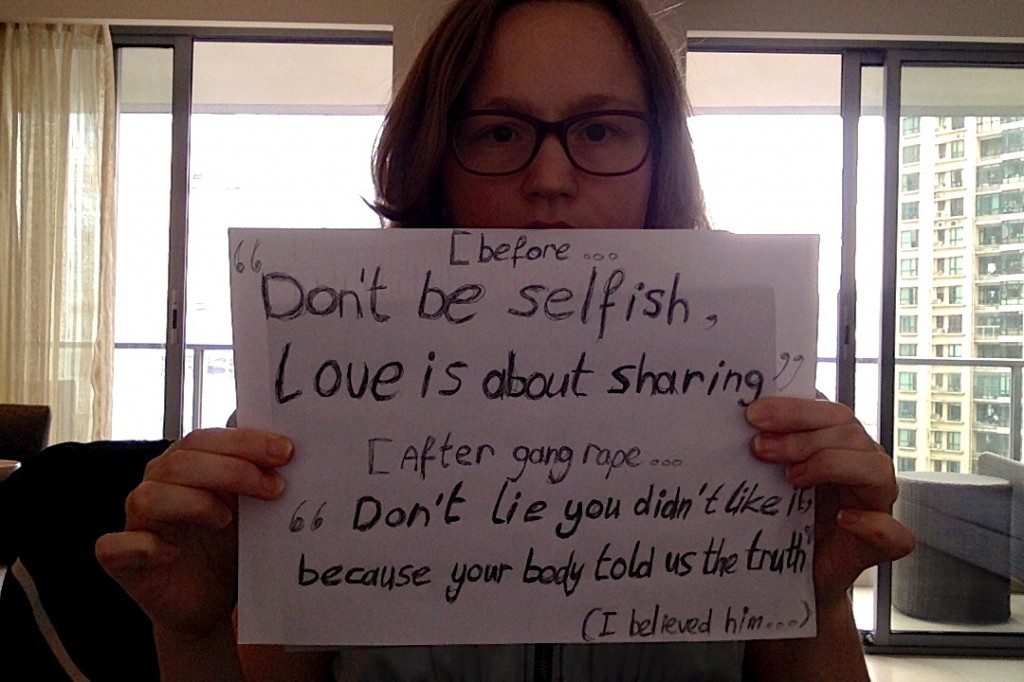 [before...
"Don't be selfish,
Love is about sharing"
[After gang rape...
"Don't lie you didn't like it,
because your body told us the truth"
(I believed him...)